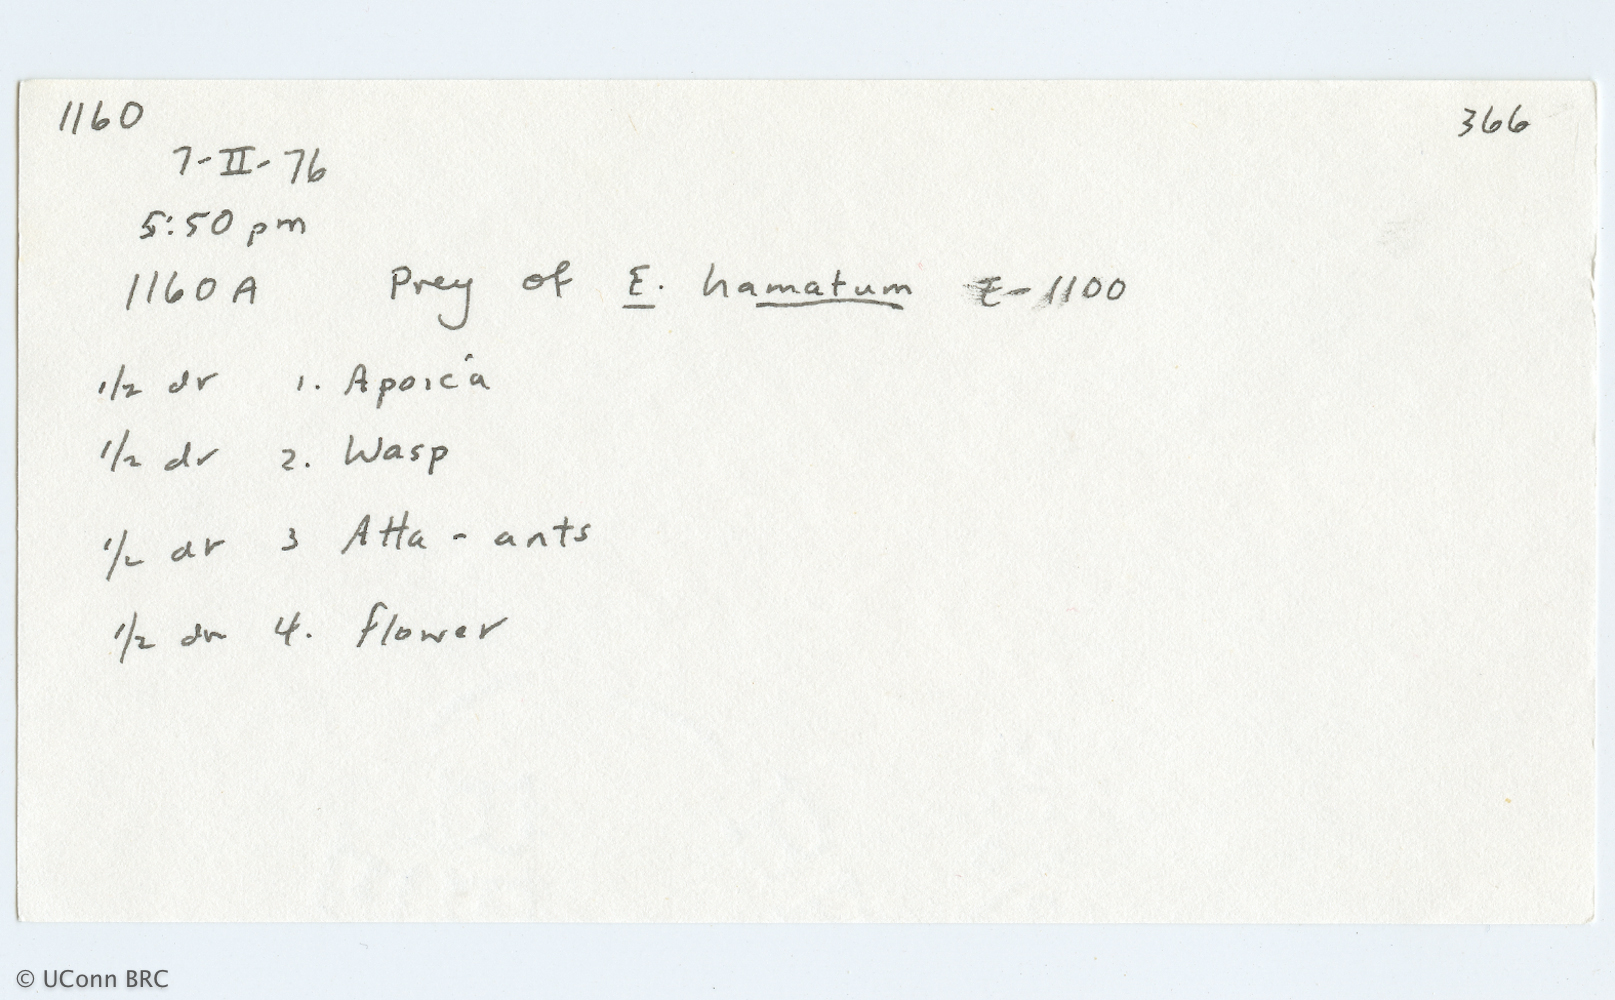 1160 366
7-II-76
5:50 pm
1160A Prey of E. hamatum E-1100
1/2 dr 1. Apoica
1/2 dr 2. Wasp
1/2 dr 3 Atta - ants
1/2 dr 4. flower
© UConn BRC